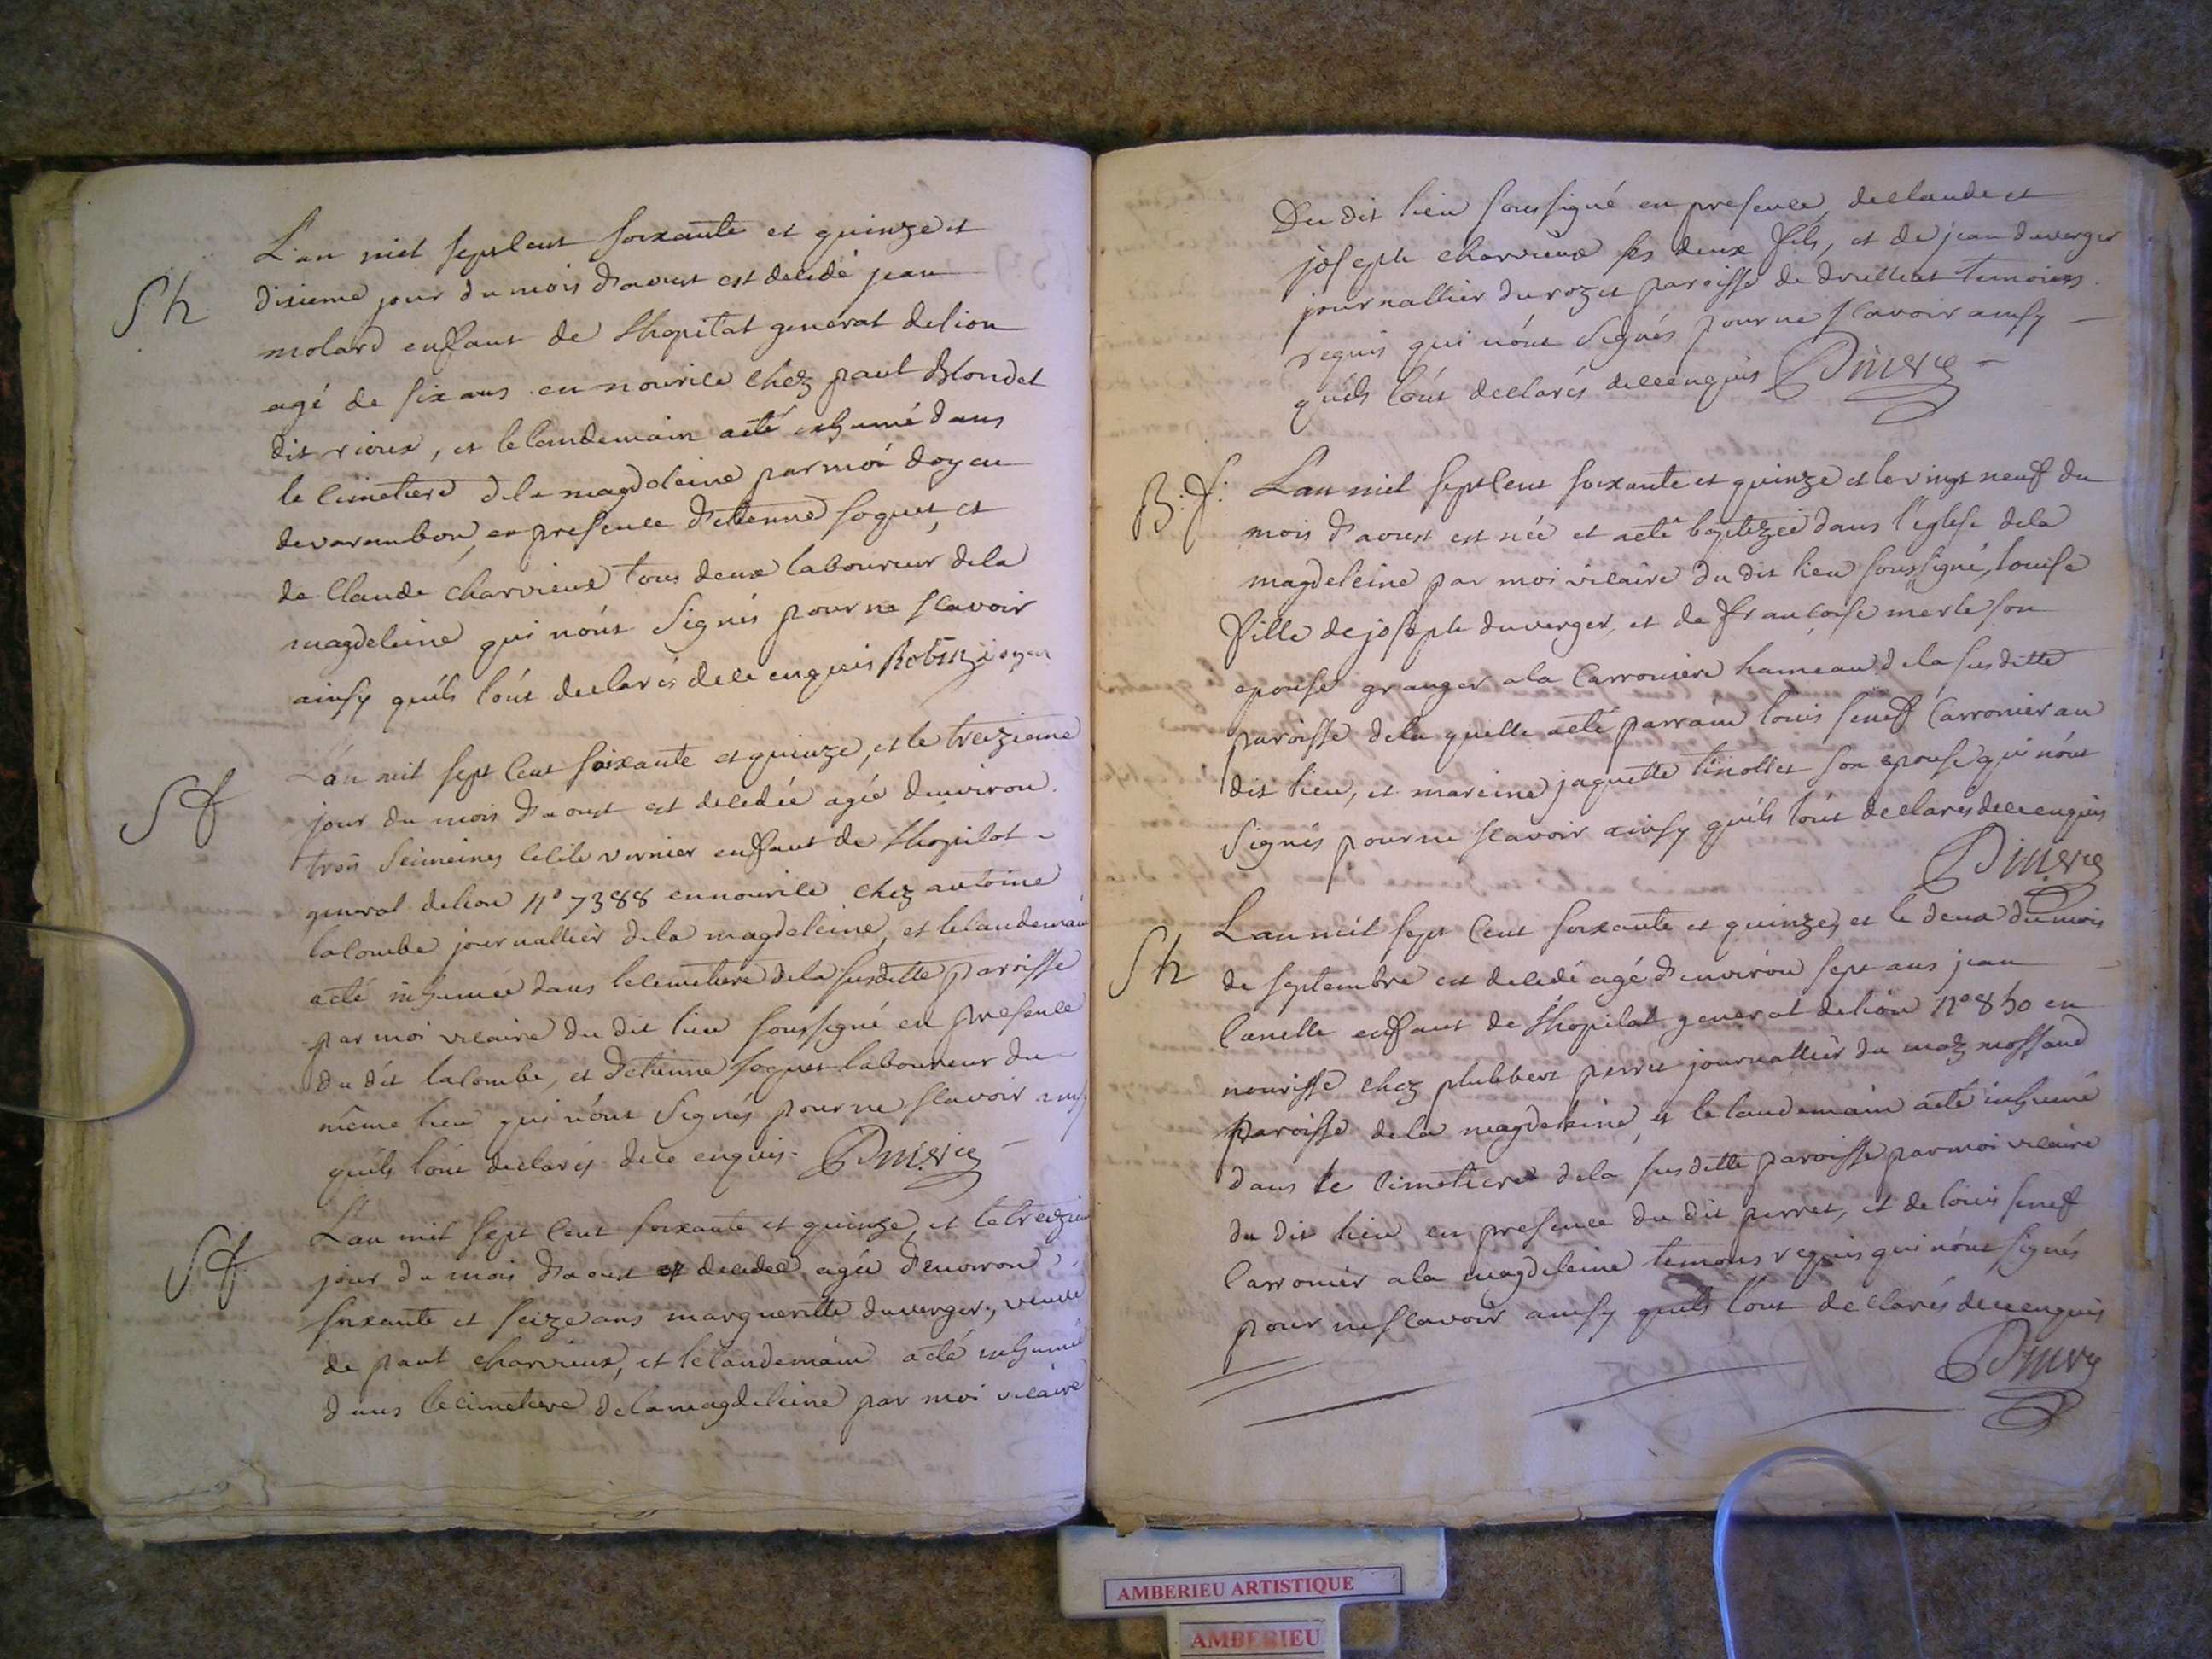 Sh
L'an mil sept cent soixante et quinze et
dixieme jour du mois d'aoust est decedé jean
molard enffant de Lhopital general de lion
agé de six ans en nourice chez paul Blondet
dit rioux, et le landemain a eté inhumé dans
le cimetiere de la magdeleine par moi doyen
de varambon, en presence d'etienne foguet, et
de Claude charvieux tous deux laboureur de la
magdeleine qui n'ont signés pour ne scavoir
ainsy qu'ils l'ont declarés de ce enquis Robin doyen
Sf
L'an mil sept cent soixante et quinze, et le treizieme
jour du mois d'aoust est decedée agée d'environ
trois semeines cecile vernier enffant de Lhopital
general de lion n° 7388 en nourice chez antoine
lacombe journallier de la magdeleine, et le landemain
a eté inhumée dans le cimetiere de la susditte paroisse
par moi vicaire du dit lieu soussigné en presence
du dit lacombe, et d'etienne foguet laboureur du
même lieu qui n'ont signés pour ne scavoir ainsy
qu'ils l'ont declarés de ce enquis.
Sf
L'an mil sept cent soixante et quinze, et le treizieme
jour du mois d'aoust est decedée agée d'environ
soixante et seize ans margueritte duverger, veuve
de paul charvieux, et le landemain a eté inhumé
dans le cimetiere de la magdeleine par moi vicaire
Du dit lieu soussigné en presence, de claude et
joseph charvieux ses deux fils, et de jean duverger
journallier du rozet paroisse de druillat temoins
requis qui n'ont signés pour ne scavoir ainsy
qu'ils l'ont declarés de ce enquis
B: f:
L'an mil sept cent soixante et quinze et le vingt neuf du
mois d'aoust est née et a eté baptizée dans l'eglise de la
magdeleine par moi vicaire du dit lieu soussigné, louise
fille de joseph duverger, et de françoise merle son
epouse granger a la Carroniere hameau de la susditte
paroisse de la quelle a eté parrain louis seneff Carronier au
dit lieu, et mareine jaquette tinollet son epouse qui n'ont
signés pour ne scavoir ainsy qu'ils l'ont declarés de ce enquis
Sh
L'an mil sept cent soixante et quinze, et le deux du mois
de septembre est decedé agé d'environ sept ans jean
enffant de Lhopital general de lion n° 850 en
nourisse chez philibert perret journallier du maz
paroisse de la magdeleine, et le landemain a eté inhumé
dans le cimetiere de la susditte paroisse par moi vicaire
du dit lieu en presence du dit perret, et de louis seneff
Carronier a la magdeleine temoins requis qui n'ont signés
pour ne scavoir ainsy qu'ils l'ont declarés de ce enquis
AMBERIEU ARTISTIQUE
AMBERIEU